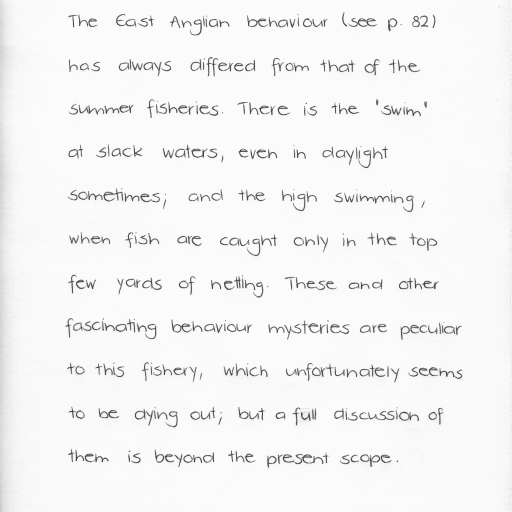 The East Anglian behaviour (see p. 82)
has always differed from that of the
summer fisheries. There is the 'swim'
at slack waters, even in daylight
sometimes; and the high swimming,
when fish are caught only in the top
few yards of netting. These and other
fascinating behaviour mysteries are peculiar
to this fishery, which unfortunately seems
to be dying out; but a full discussion of
them is beyond the present scope.